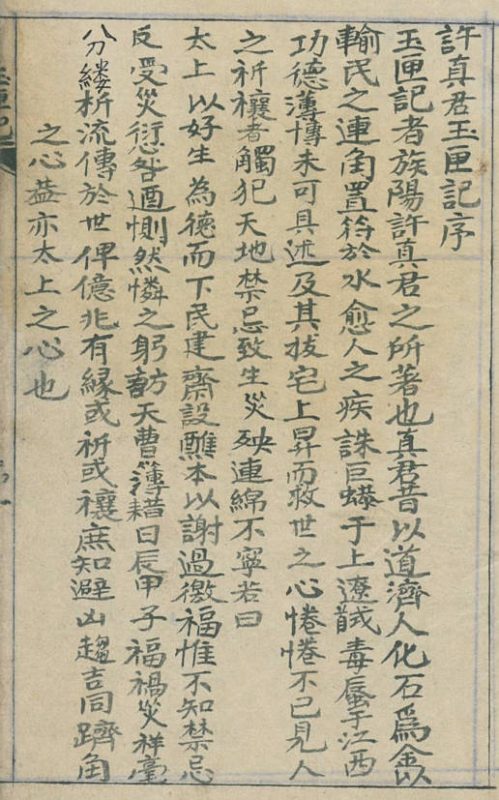 許真君玉匣記序
玉匣記者族陽許真君之所著也真君昔以道濟人化石爲金以
輸民之連角置符於水愈人之疾誅巨蟒于上遼馘毒蜃于江西
功德薄博未可具述及其拔宅上昇而救世之心惓惓不已見人
之祈禳者觸犯天地禁忌致生災殃連綿不寧若曰
太上以好生為德而下民建齋設醮本以謝過徼福惟不知禁忌
反受災愆咎迺惻然憐之躬訪天曹薄耤日辰甲子福禍災祥毫
分縷析流傳於世俾億兆有緣或祈或禳庶知避凶趨吉同躋角
之心葢亦太上之心也